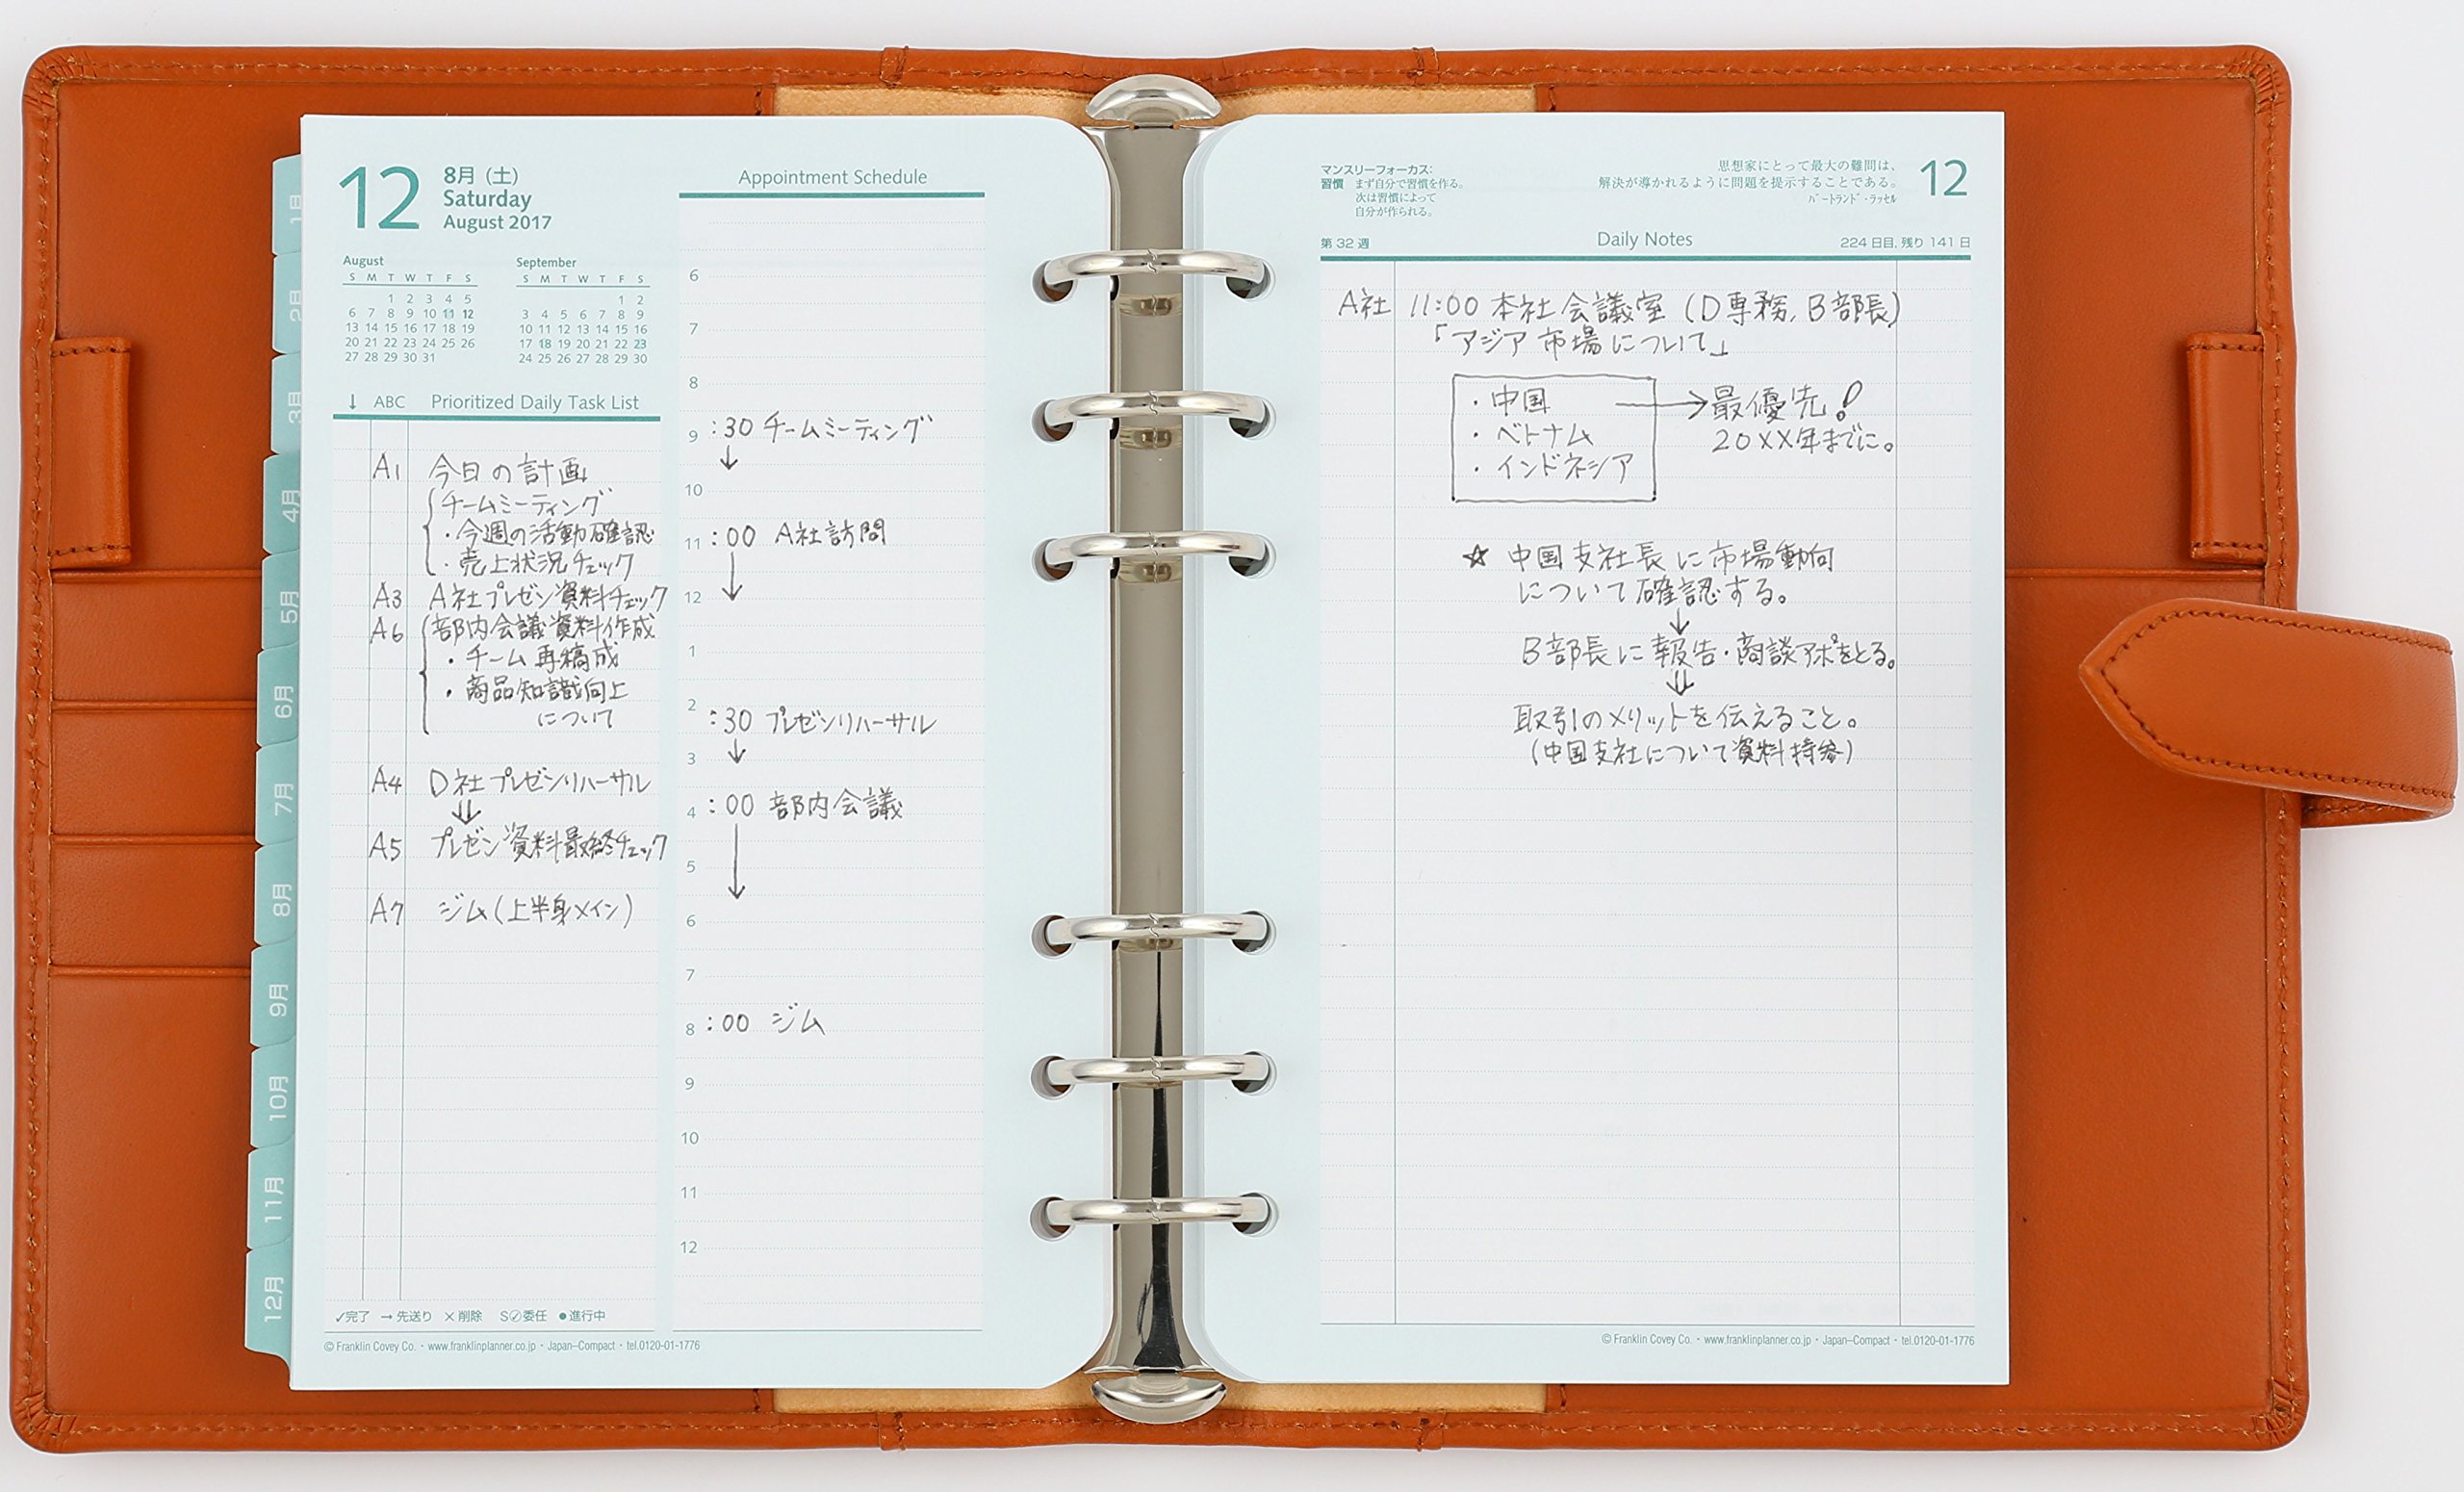 1月
2月
3月
4月
5月
6月
7月
8月
9月
10月
11月
12月
12
8月 (土)
Saturday
August 2017
August
S M T W T F S
1 2 3 4 5
6 7 8 9 10 11 12
13 14 15 16 17 18 19
20 21 22 23 24 25 26
27 28 29 30 31
September
S M T W T F S
1 2
3 4 5 6 7 8 9
10 11 12 13 14 15 16
17 18 19 20 21 22 23
24 25 26 27 28 29 30
↓ ABC Prioritized Daily Task List
A1 今日の計画
チームミーティング
・今週の活動確認
・売上状況チェック
A3 A社プレゼン資料チェック
A6 部内会議資料作成
・チーム再構成
・商品知識向上
について
A4 D社プレゼンリハーサル
⇓
A5 プレゼン資料最終チェック
A7 ジム(上半身メイン)
✓完了 →先送り ×削除 S✓委任 ●進行中
© Franklin Covey Co.・www.franklinplanner.co.jp・Japan–Compact・tel.0120-01-1776
Appointment Schedule
6
7
8
9 :30 チームミーティング
↓
10
11 :00 A社訪問
↓
12
1
2 :30 プレゼンリハーサル
↓
3
4 :00 部内会議
↓
5
6
7
8 :00 ジム
9
10
11
12
マンスリーフォーカス:
習慣 まず自分で習慣を作る。
次は習慣によって
自分が作られる。
思想家にとって最大の難問は、
解決が導かれるように問題を提示することである。
バートランド・ラッセル
12
第 32 週 Daily Notes 224 日目, 残り 141 日
A社 11:00 本社会議室 (D専務, B部長)
「アジア市場について」
・中国 → 最優先!
・ベトナム 20XX年までに。
・インドネシア
☆ 中国支社長に市場動向
について確認する。
↓
B部長に報告・商談アポをとる。
⇓
取引のメリットを伝えること。
(中国支社について資料持参)
© Franklin Covey Co.・www.franklinplanner.co.jp・Japan–Compact・tel.0120-01-1776